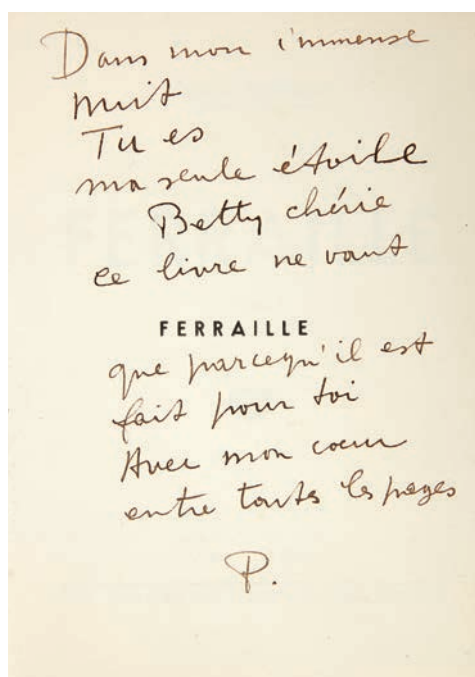 Dans mon immense
nuit
Tu es
ma seule étoile
Betty chérie
ce livre ne vaut
FERRAILLE
que parcequ'il est
fait pour toi
Avec mon cœur
entre toutes les pages
P.